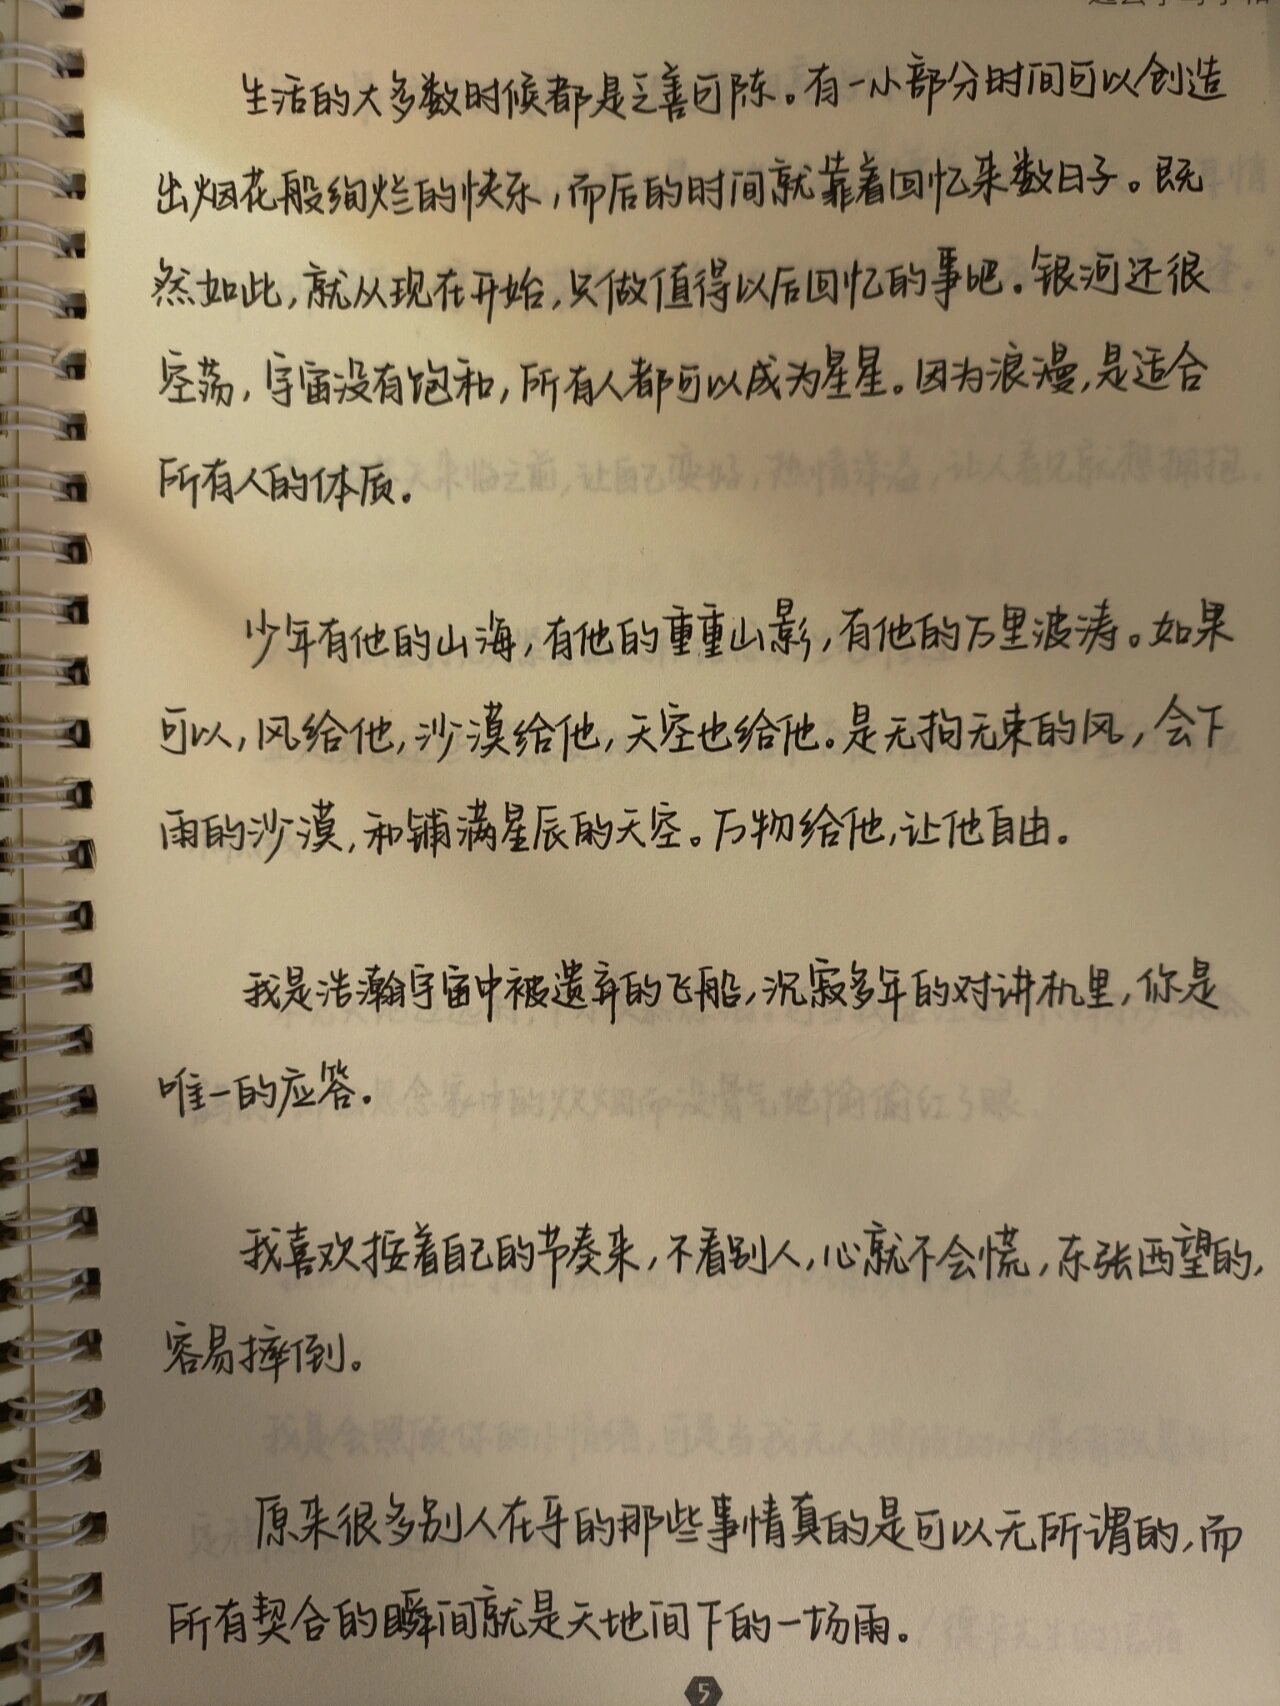 生活的大多数时候都是乏善可陈。有一小部分时间可以创造
出烟花般绚烂的快乐，而后的时间就靠着回忆来数日子。既
然如此，就从现在开始，只做值得以后回忆的事吧。银河还很
空荡，宇宙没有饱和，所有人都可以成为星星。因为浪漫，是适合
所有人的体质。
少年有他的山海，有他的重重山影，有他的万里波涛。如果
可以，风给他，沙漠给他，天空也给他。是无拘无束的风，会下
雨的沙漠，和铺满星辰的天空。万物给他，让他自由。
我是浩瀚宇宙中被遗弃的飞船，沉寂多年的对讲机里，你是
唯一的应答。
我喜欢按着自己的节奏来，不看别人，心就不会慌，东张西望的，
容易摔倒。
原来很多别人在乎的那些事情真的是可以无所谓的，而
所有契合的瞬间就是天地间下的一场雨。
5